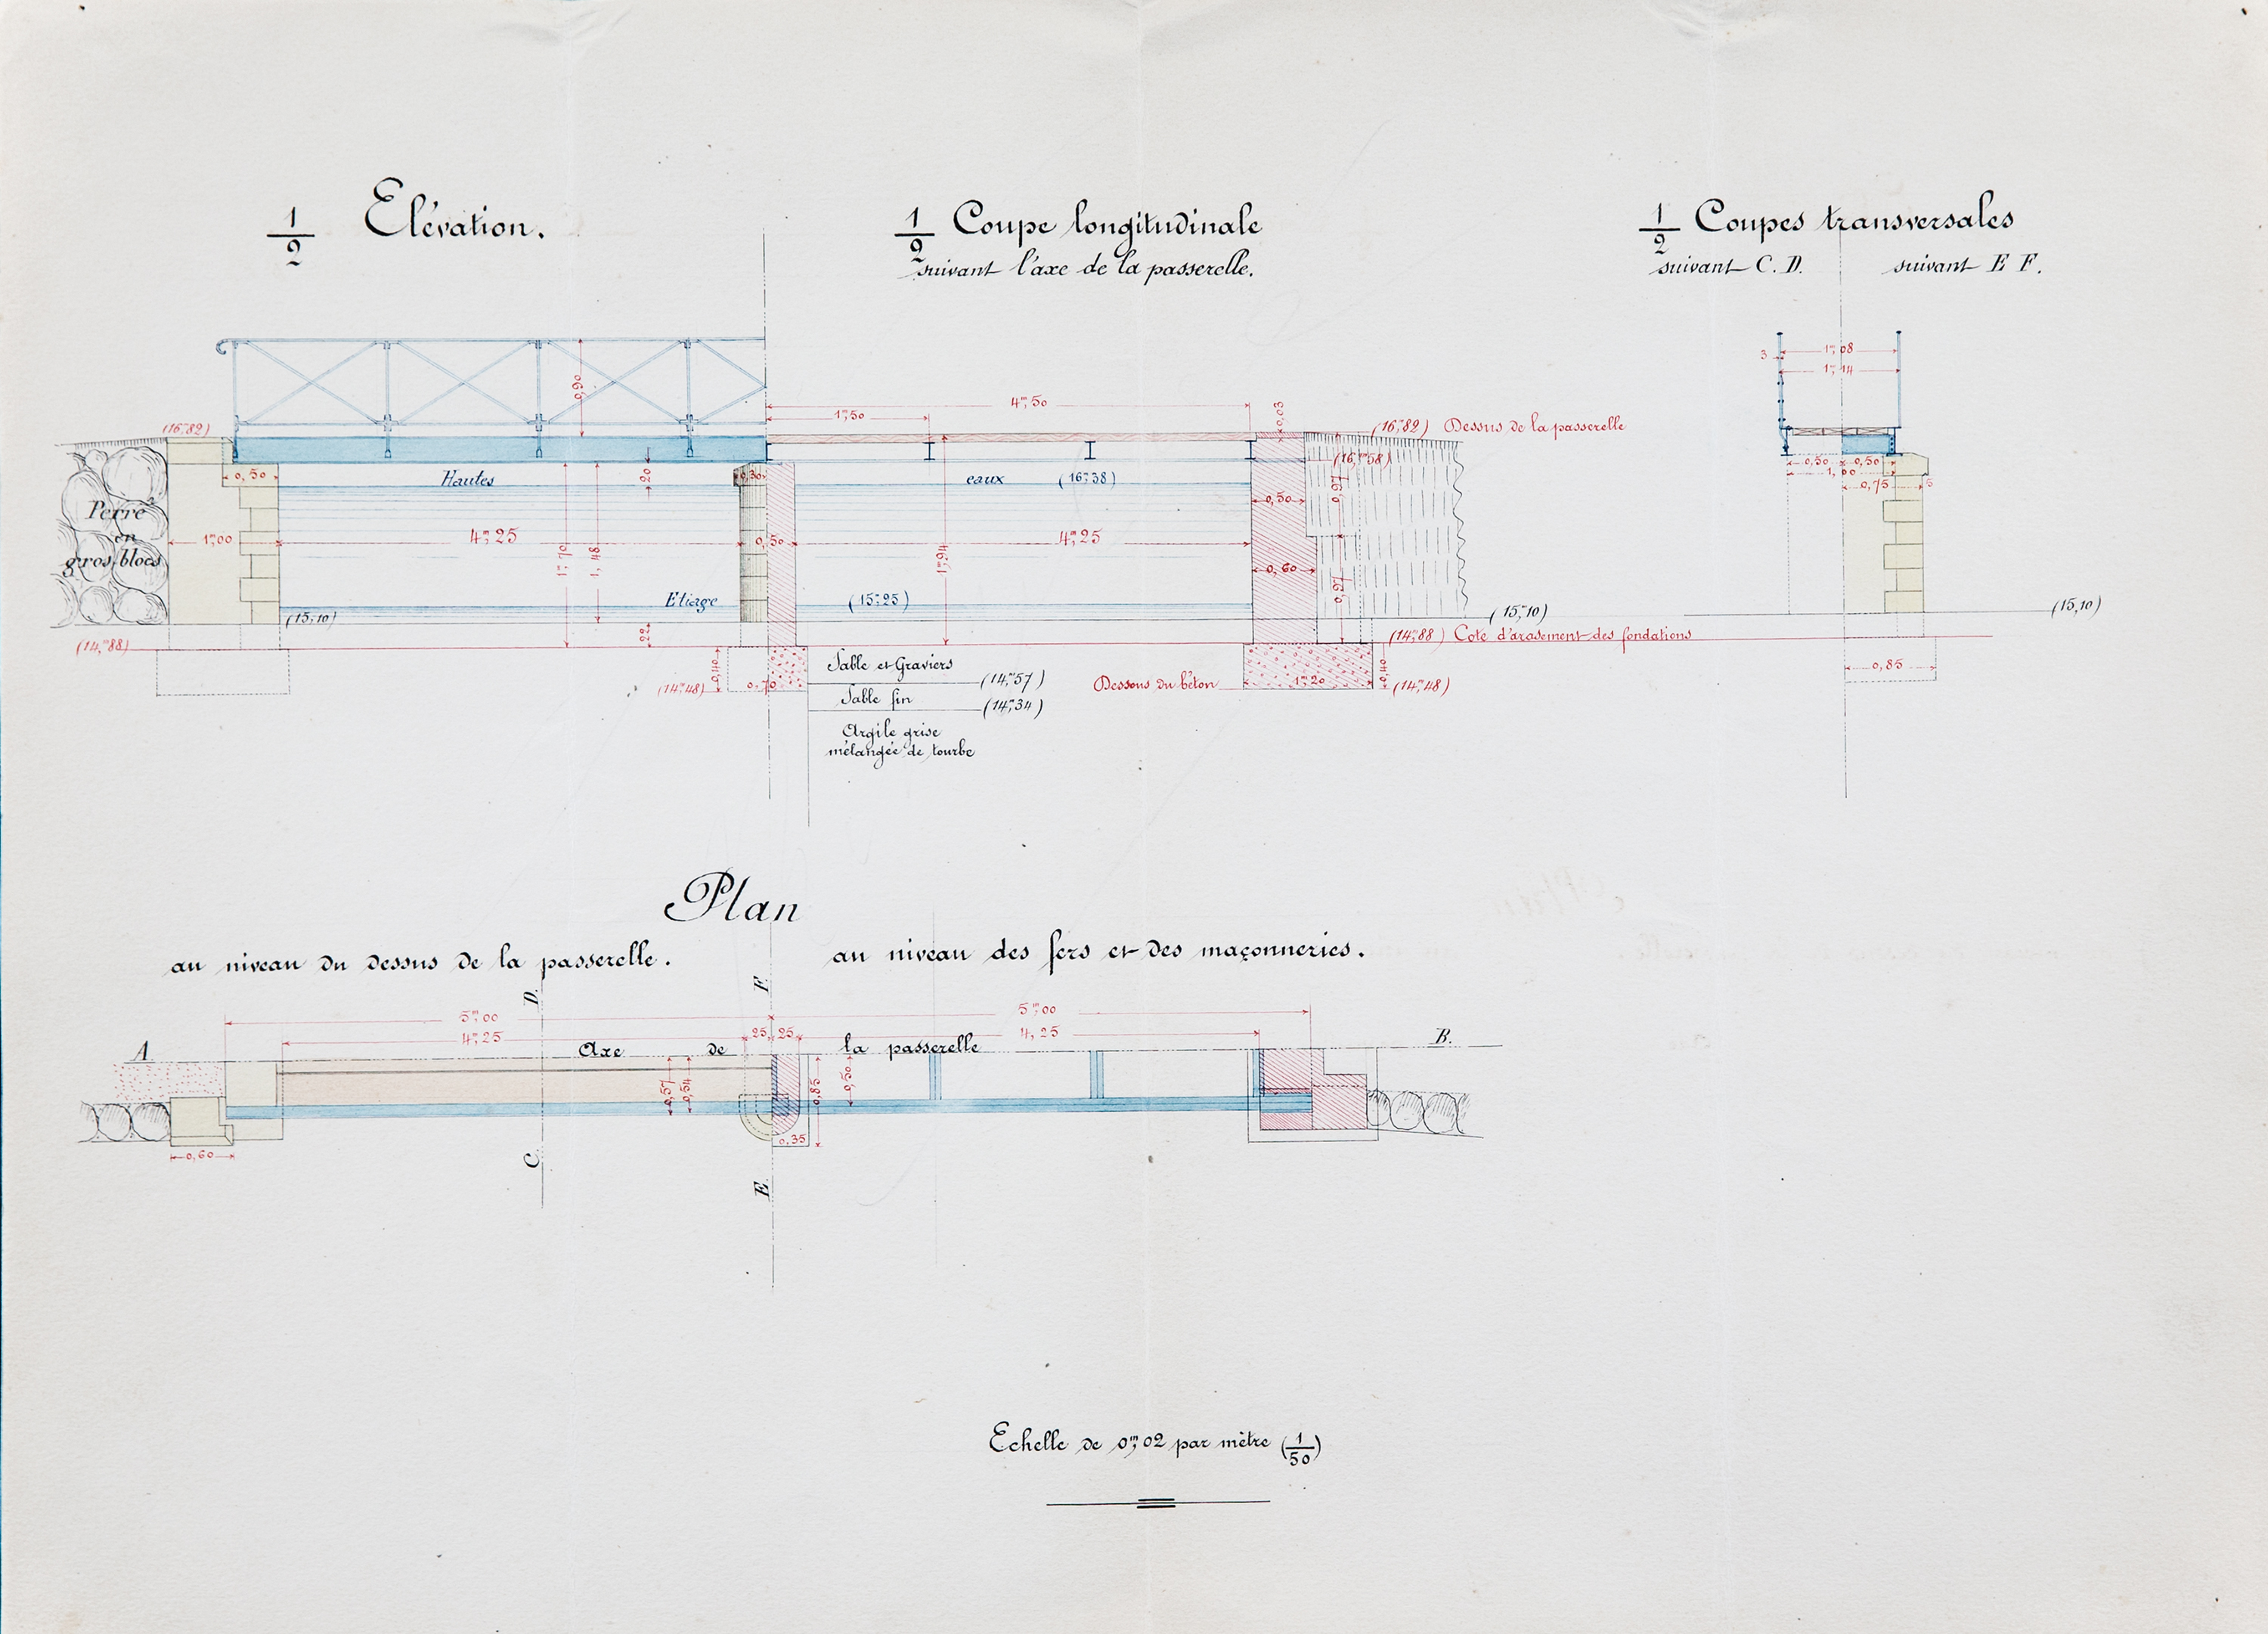 1/2 Elévation.
1/2 Coupe longitudinale
suivant l'axe de la passerelle.
1/2 Coupes transversales
suivant C. D. suivant E F.
0,90
4m,50
1m,50
0,03
3
1m,08
1m,14
(16m,82)
(16m,82) Dessus de la passerelle
(16,m58)
0,50
Hautes
20
0,30
eaux (16m,38)
0,50 0,50
1,00
0,75 5
Perré
en
gros blocs
1m,00
4m,25
1m,70
1,48
0,50
1m,94
4m,25
0,50
0,97
0,60
0,97
Etiage
(15m,25)
(15,10)
22
(15m,10)
(15,10)
(14,m88)
(14,m88) Cote d'arasement des fondations
0,85
0,40
(14m,48)
0,70
Sable et Graviers
(14m,57)
Sable fin
(14m,34)
Argile grise
mélangée de tourbe
Dessous du béton
1m,20
0,40
(14m,48)
Plan
au niveau du dessus de la passerelle.
au niveau des fers et des maçonneries.
D.
F.
5m,00
5m,00
4m,25
25 25
4,25
A.
Axe de la passerelle
B.
0,57
0,54
0,85
0,50
0,35
0,60
C.
E.
Echelle de 0m,02 par mètre (1/50)